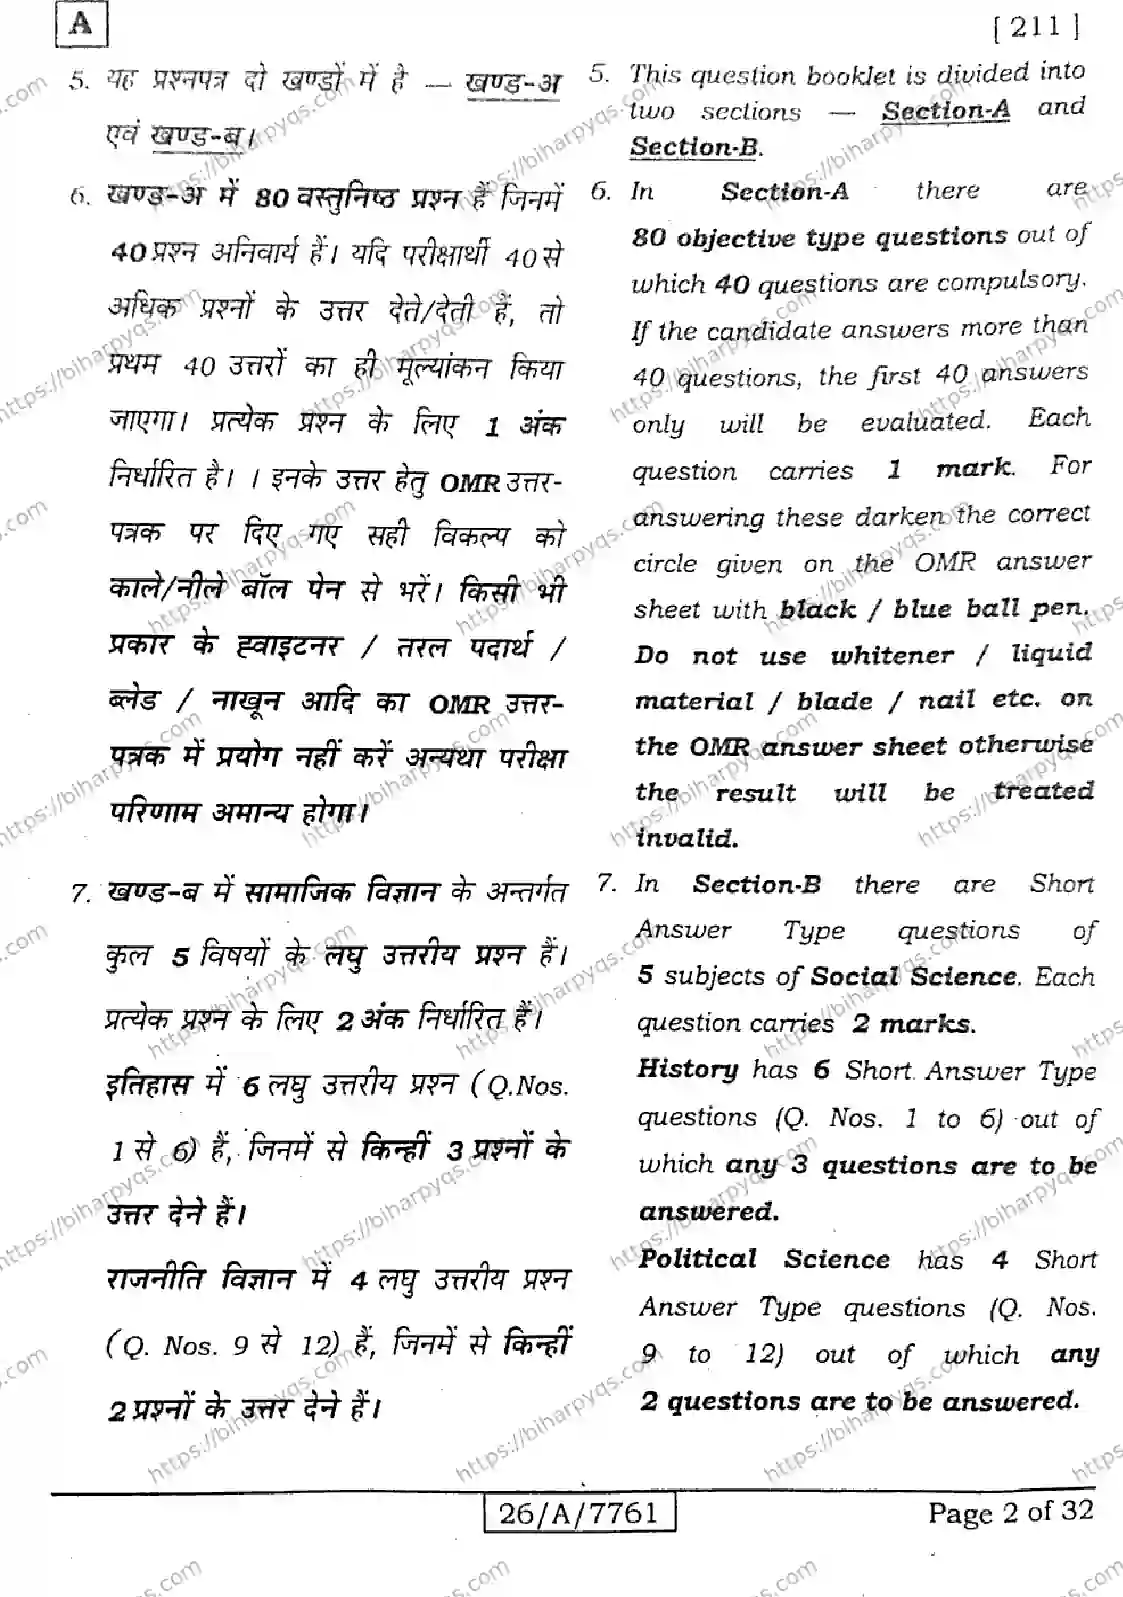 A
[ 211 ]
5. यह प्रश्नपत्र दो खण्डों में है — खण्ड-अ
एवं खण्ड-ब।
6. खण्ड-अ में 80 वस्तुनिष्ठ प्रश्न हैं जिनमें
40 प्रश्न अनिवार्य हैं। यदि परीक्षार्थी 40 से
अधिक प्रश्नों के उत्तर देते/देती हैं, तो
प्रथम 40 उत्तरों का ही मूल्यांकन किया
जाएगा। प्रत्येक प्रश्न के लिए 1 अंक
निर्धारित है। । इनके उत्तर हेतु OMR उत्तर-
पत्रक पर दिए गए सही विकल्प को
काले/नीले बॉल पेन से भरें। किसी भी
प्रकार के ह्वाइटनर / तरल पदार्थ /
ब्लेड / नाखून आदि का OMR उत्तर-
पत्रक में प्रयोग नहीं करें अन्यथा परीक्षा
परिणाम अमान्य होगा।
7. खण्ड-ब में सामाजिक विज्ञान के अन्तर्गत
कुल 5 विषयों के लघु उत्तरीय प्रश्न हैं।
प्रत्येक प्रश्न के लिए 2 अंक निर्धारित हैं।
इतिहास में 6 लघु उत्तरीय प्रश्न (Q.Nos.
1 से 6) हैं, जिनमें से किन्हीं 3 प्रश्नों के
उत्तर देने हैं।
राजनीति विज्ञान में 4 लघु उत्तरीय प्रश्न
(Q. Nos. 9 से 12) हैं, जिनमें से किन्हीं
2 प्रश्नों के उत्तर देने हैं।
5. This question booklet is divided into
two sections — Section-A and
Section-B.
6. In Section-A there are
80 objective type questions out of
which 40 questions are compulsory.
If the candidate answers more than
40 questions, the first 40 answers
only will be evaluated. Each
question carries 1 mark. For
answering these darken the correct
circle given on the OMR answer
sheet with black / blue ball pen.
Do not use whitener / liquid
material / blade / nail etc. on
the OMR answer sheet otherwise
the result will be treated
invalid.
7. In Section-B there are Short
Answer Type questions of
5 subjects of Social Science. Each
question carries 2 marks.
History has 6 Short Answer Type
questions (Q. Nos. 1 to 6) out of
which any 3 questions are to be
answered.
Political Science has 4 Short
Answer Type questions (Q. Nos.
9 to 12) out of which any
2 questions are to be answered.
26/A/7761
Page 2 of 32
https://biharpyqs.com